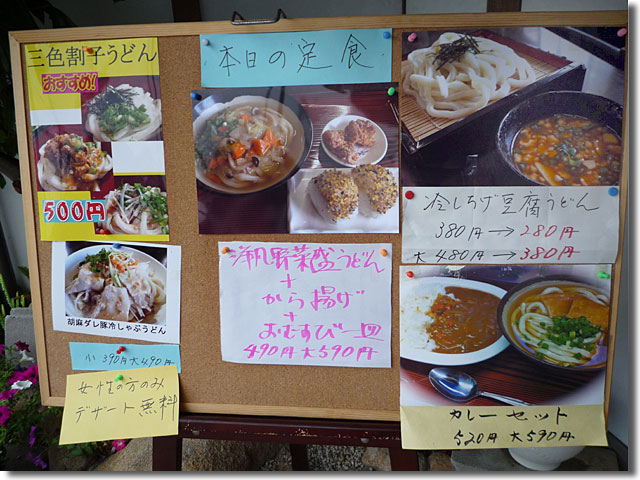 三色割子うどん
おすすめ!
500円
胡麻ダレ豚冷しゃぶうどん
小 390円 大490円
女性の方のみ
デザート無料
本日の定食
野菜盛うどん
+
から揚げ
+
おむすび一皿
490円 大590円
冷しちげ豆腐うどん
380円→280円
大480円→380円
カレーセット
520円 大590円